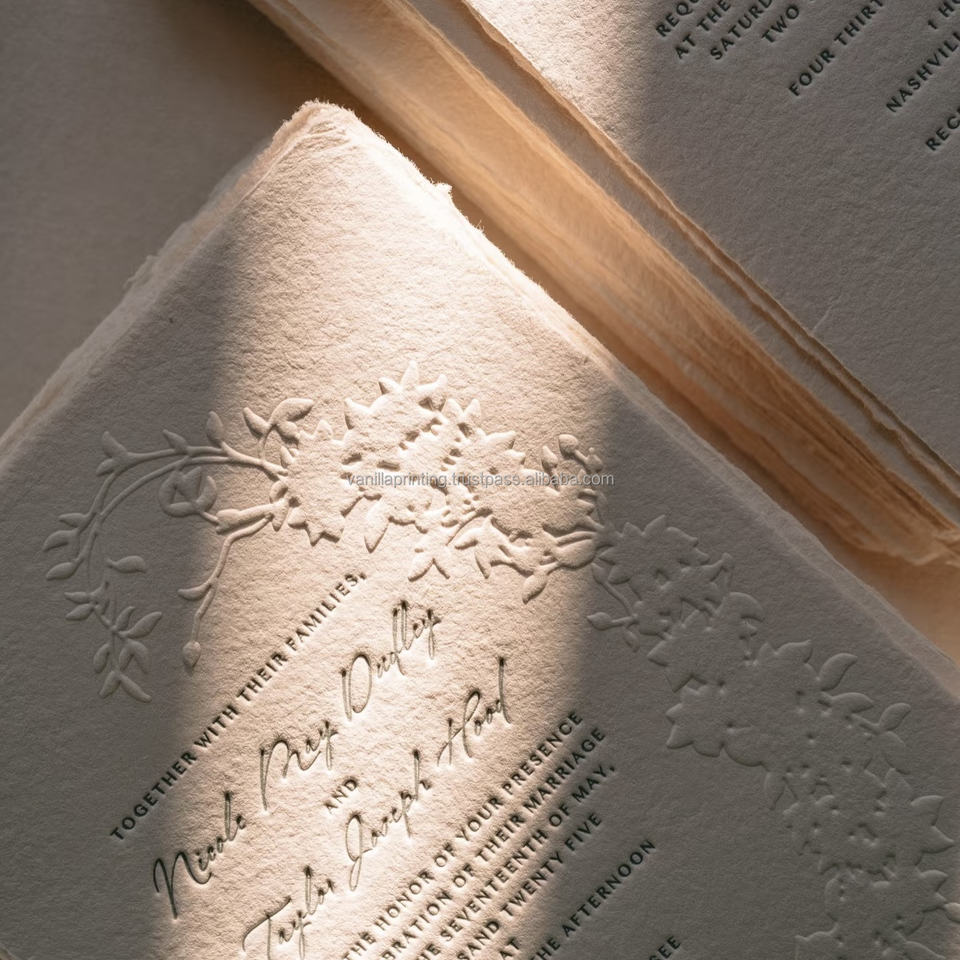 REQU
AT THE
SATURD
TWO
FOUR THIRT
1 H
NASHVILL
RECE
vanillaprinting.trustpass.alibaba.com
TOGETHER WITH THEIR FAMILIES,
Nicole May Dudley
AND
Taylor Joseph Hood
THE HONOR OF YOUR PRESENCE
BRATION OF THEIR MARRIAGE
HE SEVENTEENTH OF MAY,
SAND TWENTY FIVE
AT
THE AFTERNOON
SEE